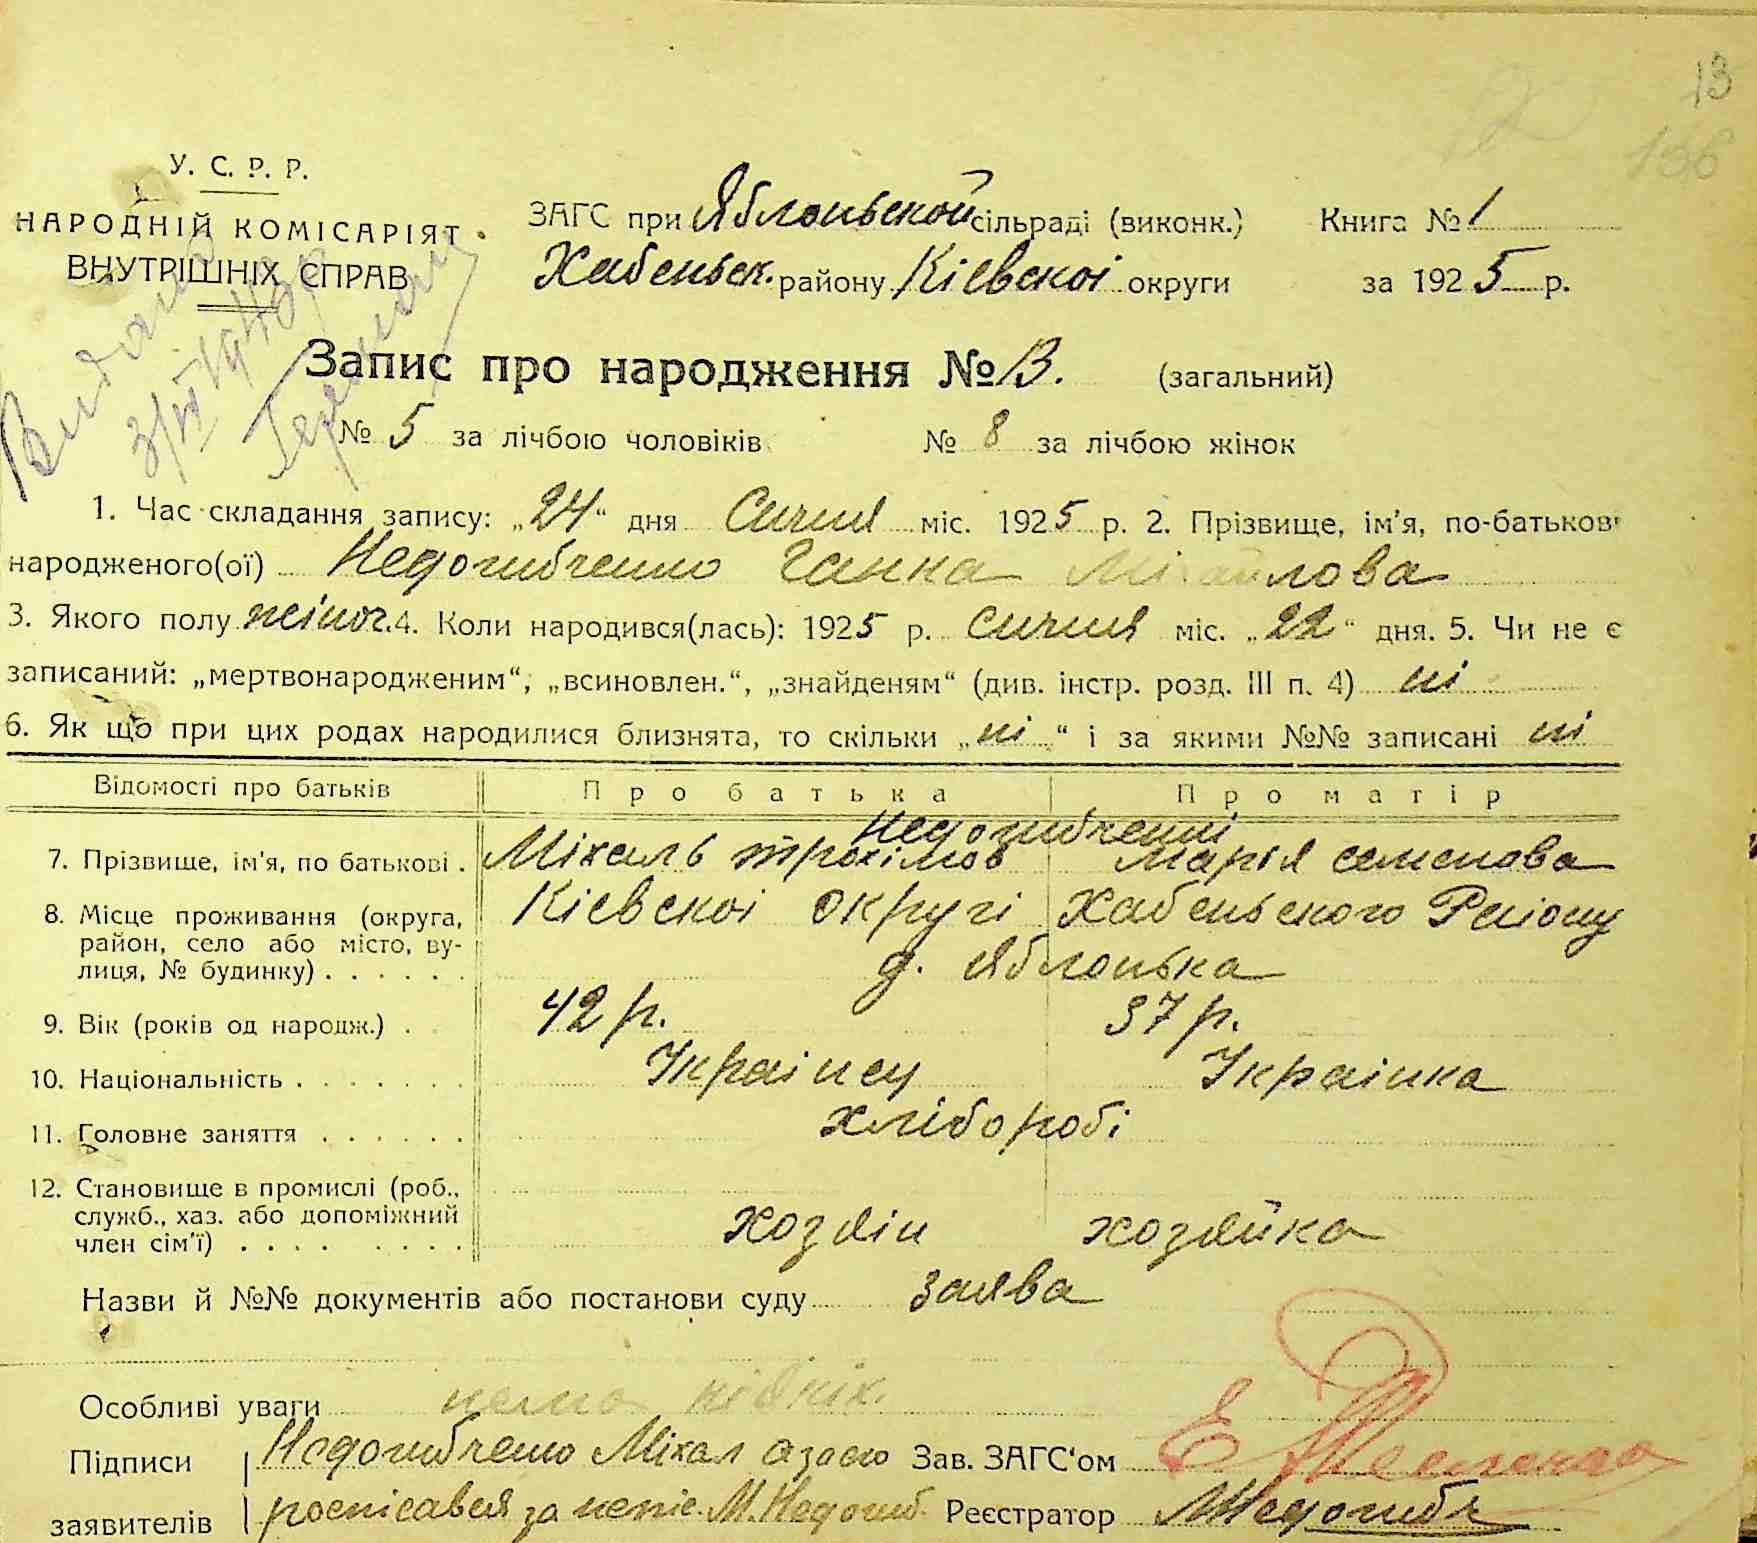 13
136
У. С. Р. Р.
НАРОДНІЙ КОМІСАРІЯТ
ВНУТРІШНІХ СПРАВ
ЗАГС при Яблоньской сільраді (виконк.) Книга № 1
Хабеньск. району Кієвскоі округи за 1925 р.
Видано
Запис про народження № 13. (загальний)
№ 5 за лічбою чоловіків № 8 за лічбою жінок
1. Час складання запису: „24“ дня Сичня міс. 1925 р. 2. Прізвище, ім'я, по-батькові
народженого(ої) Недогибченко Ганна Міхайлова
3. Якого полу жіноч. 4. Коли народився(лась): 1925 р. Сичня міс. „22“ дня. 5. Чи не є
записаний: „мертвонародженим“, „всиновлен.“, „знайденям“ (див. інстр. розд. III п. 4) ні
6. Як що при цих родах народилися близнята, то скільки „ні“ і за якими №№ записані ні
Відомості про батьків Про батька Про матір
Недогибченкі
7. Прізвище, ім'я, по батькові . Міхаль трохімов Марія семенова
8. Місце проживання (округа, Кієвскоі округі Хабеньского Району
район, село або місто, ву-
лиця, № будинку) . . . . . . д. Яблонька
9. Вік (років од народж.) . . 42 р. 37 р.
10. Національність . . . . . . . Украінец Украінка
11. Головне заняття . . . . . . хліборобі
12. Становище в промислі (роб.,
служб., хаз. або допоміжний хозяін хозяйка
член сім'ї) . . . . . . . .
Назви й №№ документів або постанови суду заява
Особливі уваги нема
Підписи Недогибченко Міхал Зав. ЗАГС'ом Е
заявителів росписався за непис. М. Недогиб Реєстратор МНедогибч